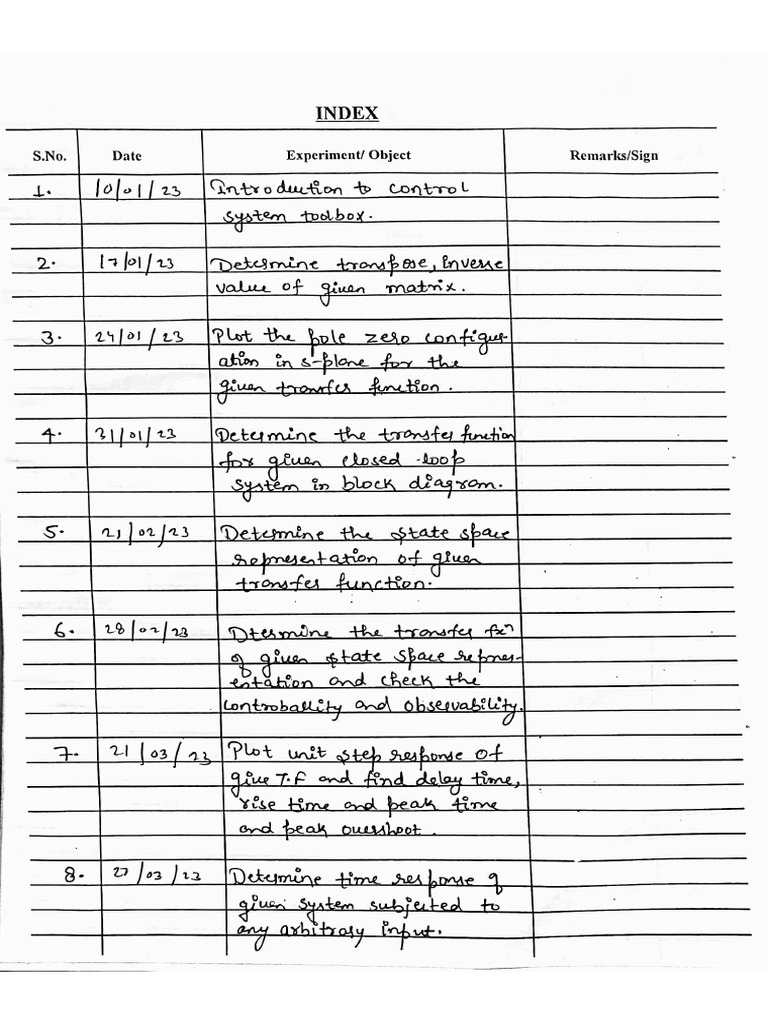 INDEX
S.No. Date Experiment/ Object Remarks/Sign
1. 10/01/23 Introduction to control
system toolbox.
2. 17/01/23 Determine transpose, inverse
value of given matrix.
3. 24/01/23 Plot the pole zero configur-
ation in s-plane for the
given transfer function.
4. 31/01/23 Determine the transfer function
for given closed-loop
system in block diagram.
5. 21/02/23 Determine the state space
representation of given
transfer function.
6. 28/02/23 Dtermine the transfer fxⁿ
of given state space repres-
entation and check the
controballity and observability.
7. 21/03/23 Plot unit step response of
give T.F and find delay time,
rise time and peak time
and peak overshoot.
8. 27/03/23 Determine time response of
given system subjected to
any arbitrary input.